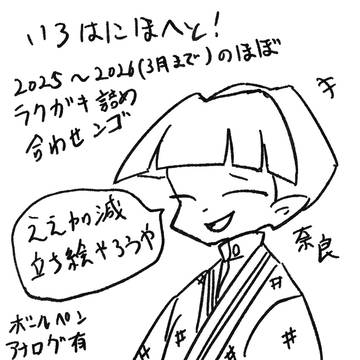 いろはにほへと!
2025〜2026(3月まで)のほぼ
ラクガキ詰め
合わせンゴ
ええ加減
立ち絵やろうや
奈良
ボールペン
アナログ有